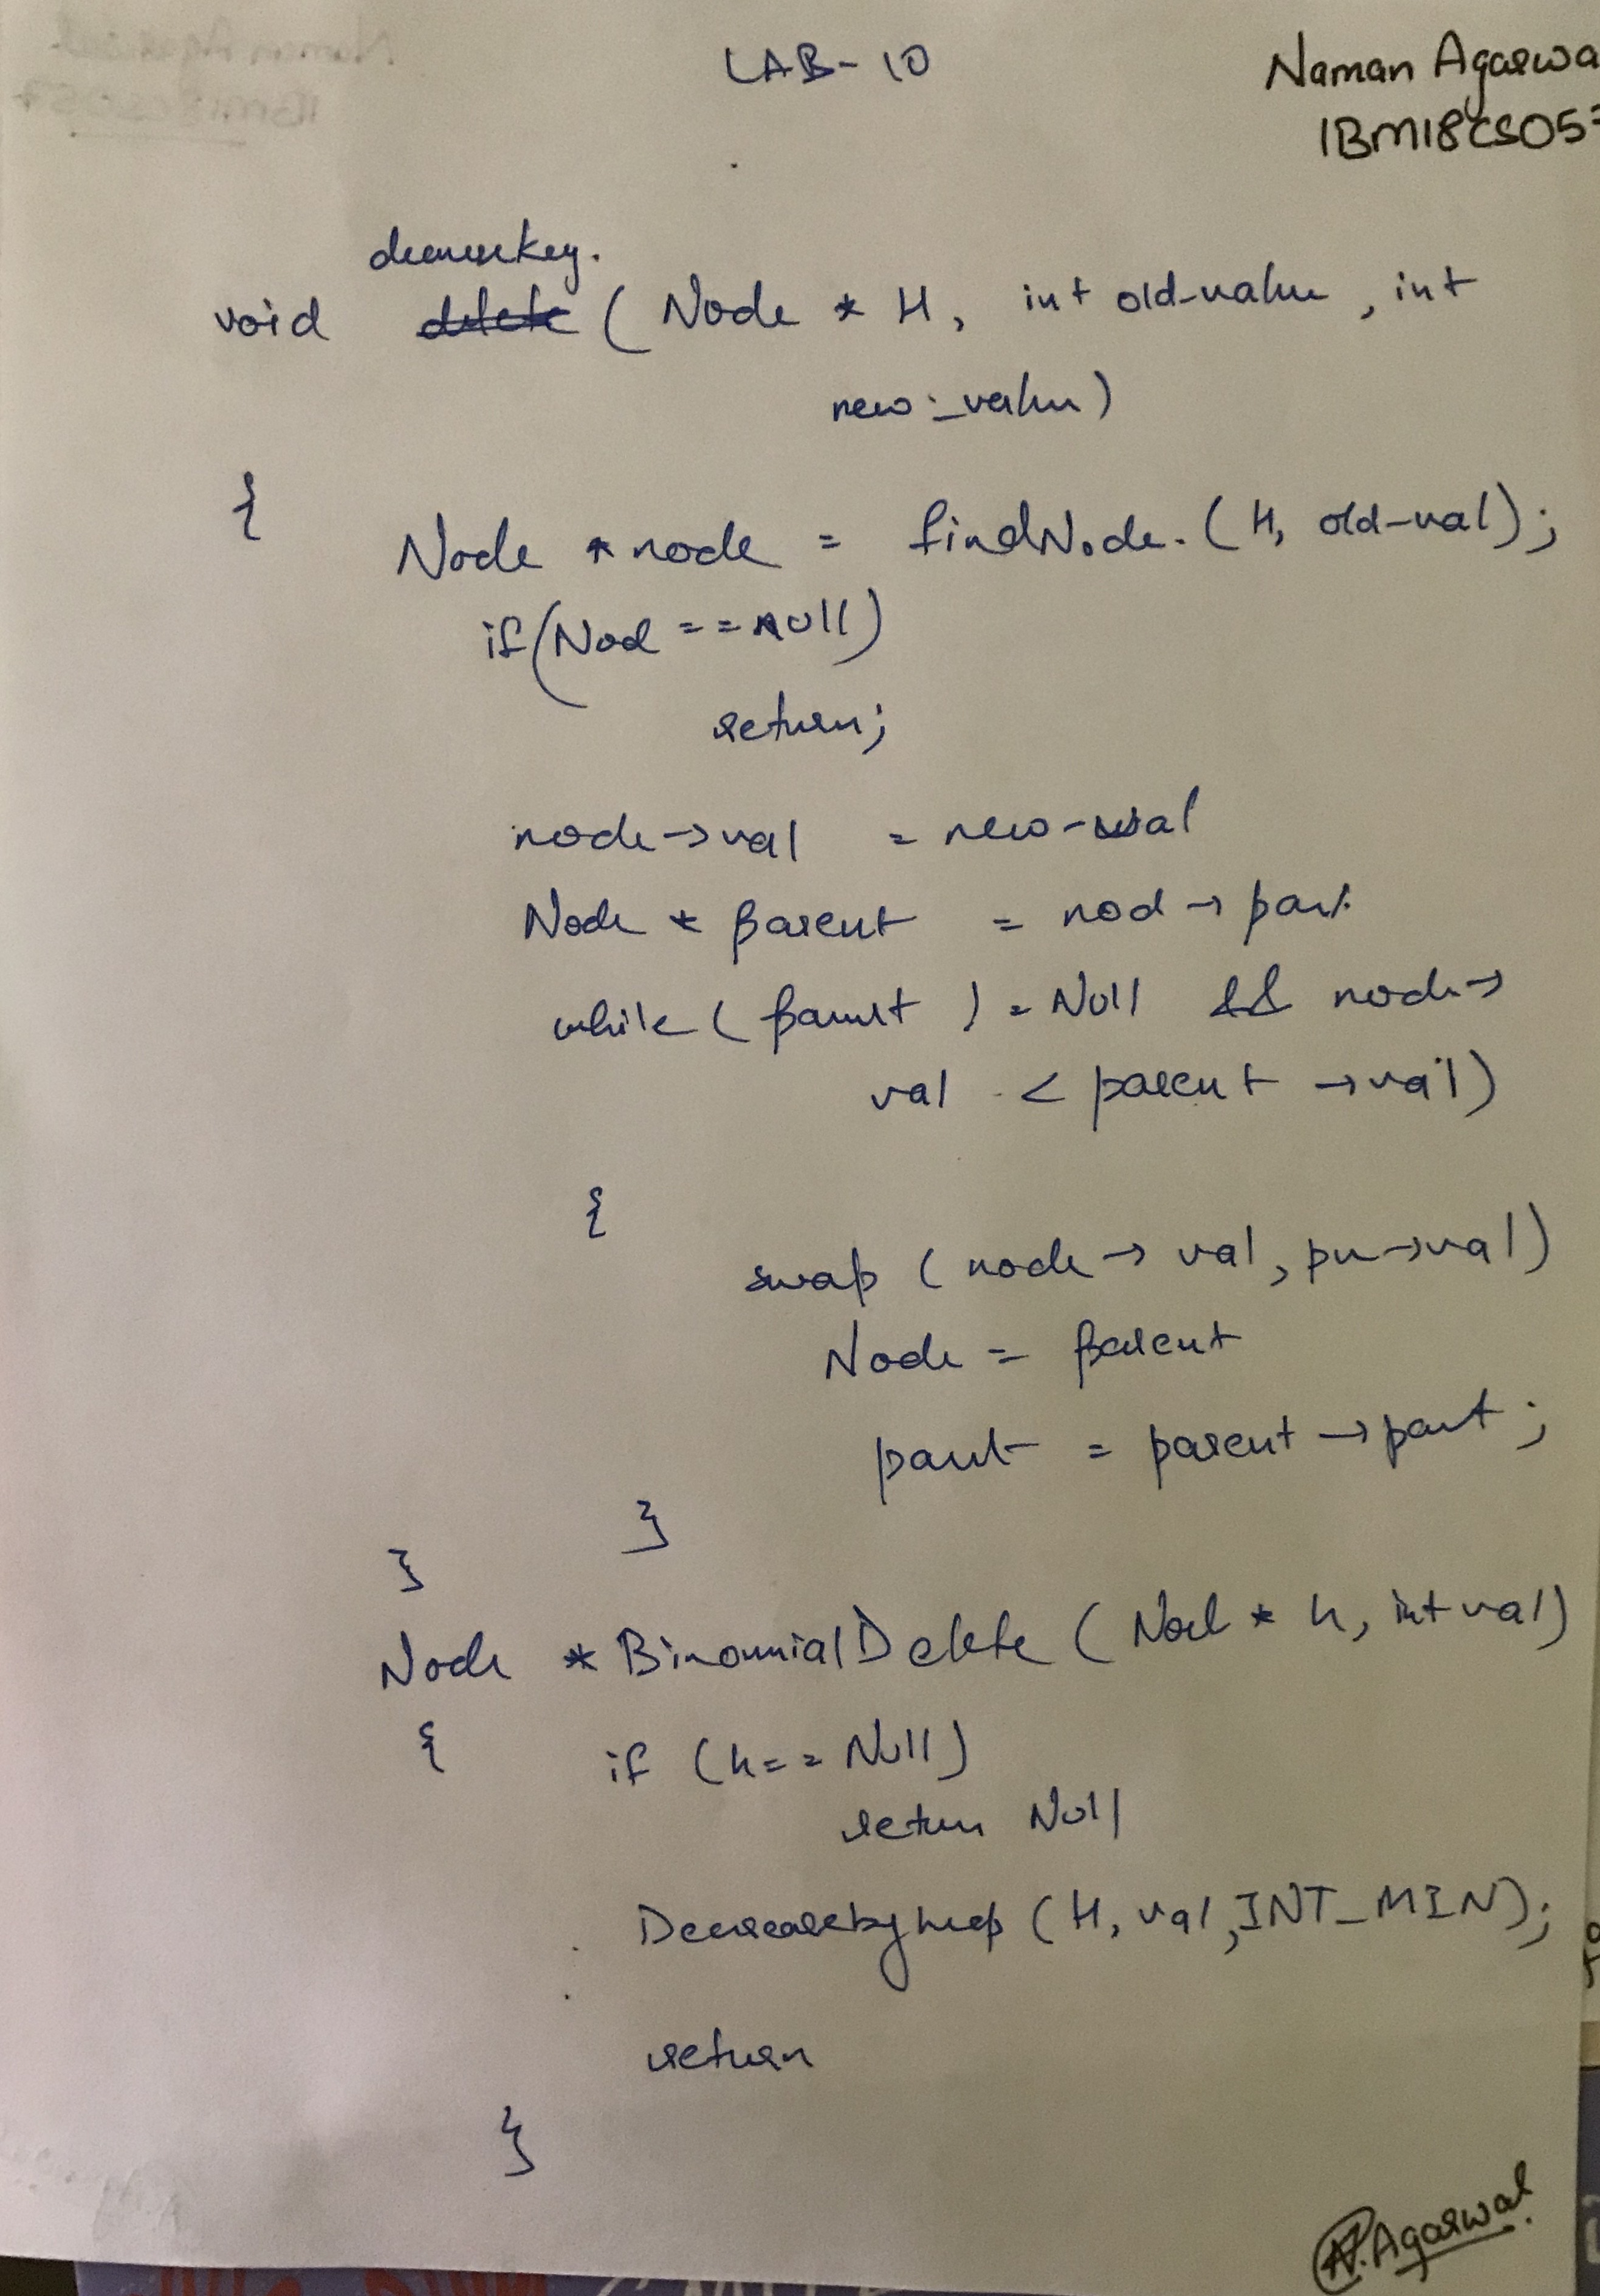 LAB-10
Naman Agarwa
1BM18CS057
decreasekey.
void delete ( Node * H, int old-value , int
new_value)
{
Node *node = findNode. (H, old-val);
if(Nod == null)
return;
node->val = new-val
Node * parent = nod -> part
while ( parent != Null && node->
val < parent -> val)
{
swap ( node -> val, pn->val)
Node = parent
parent = parent -> part ;
}
}
Node * BinomialDelete ( Nod * h, int val)
{
if (h == Null)
return Null
Decreasekeyheap (H, val, INT_MIN);
return
}
N. Agarwal